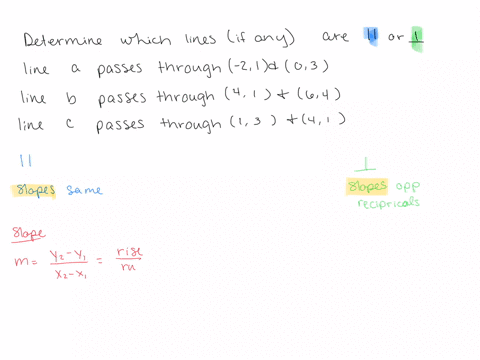 Determine which lines (if any) are || or ⊥
line a passes through (-2,1) & (0,3)
line b passes through (4,1) & (6,4)
line c passes through (1,3) & (4,1)
||
slopes same
⊥
slopes opp
recipricals
Slope
m = y₂-y₁ / x₂-x₁ = rise / ru